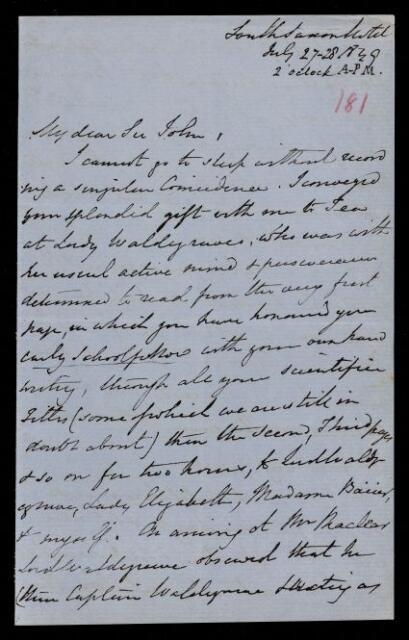 South Saxon Hotel
July 27-28 1849
2 o'clock A.P.M.
181
My dear Sir John,
I cannot go to sleep without record
ing a singular Coincidence. I conveyed
your splendid gift with me to Tea
at Lady Waldegraves, who was with
her usual active mind & perseverance
determined to read from the very first
page, in which you have honoured your
early Schoolfellow with your own hand
writing, through all your scientific
Titles (some of which we are still in
doubt about) then the second, Third pages
& so on for two hours, to Lord Waldg
egrave, Lady Elizabeth, Madame
& myself. On arriving at Mr Maclear
Lord Waldegrave observed that he
(then Captain Waldegrave as